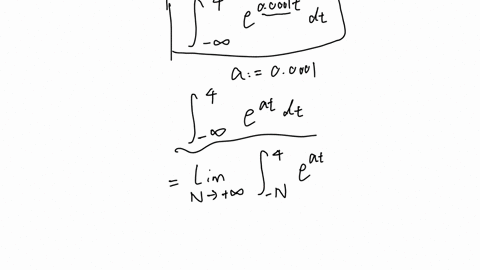 ∫_{-∞}^{4} e^{0.0001t} dt
a := 0.0001
∫_{-∞}^{4} e^{at} dt
= Lim_{N→+∞} ∫_{-N}^{4} e^{at}